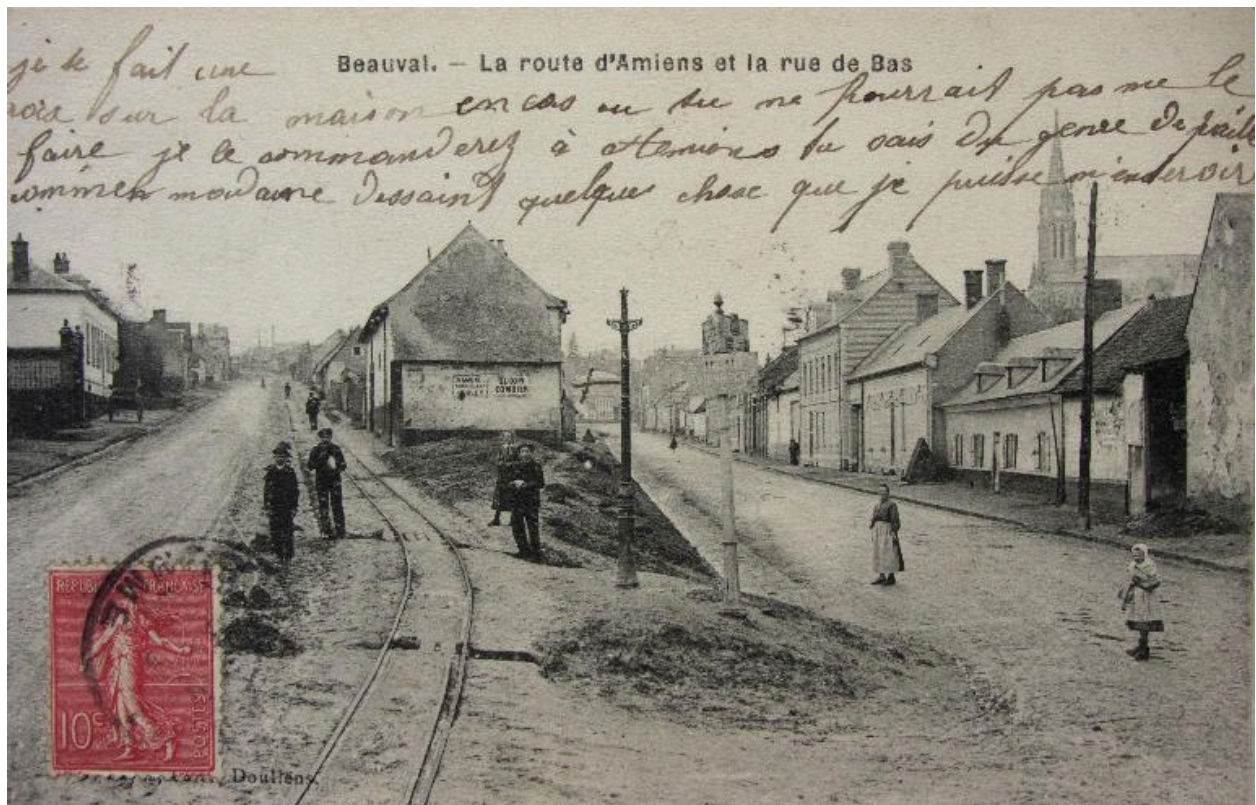 Beauval. — La route d'Amiens et la rue de Bas
je te fait une
croix sur la maison en cas ou tu ne pourrait pas me le
faire je le commanderez à Amiens tu sais du genre de
madame Dessaint quelque chose que je puisse m'en servir
RÉPUBLIQUE FRANÇAISE
POSTES
10c
Doullens